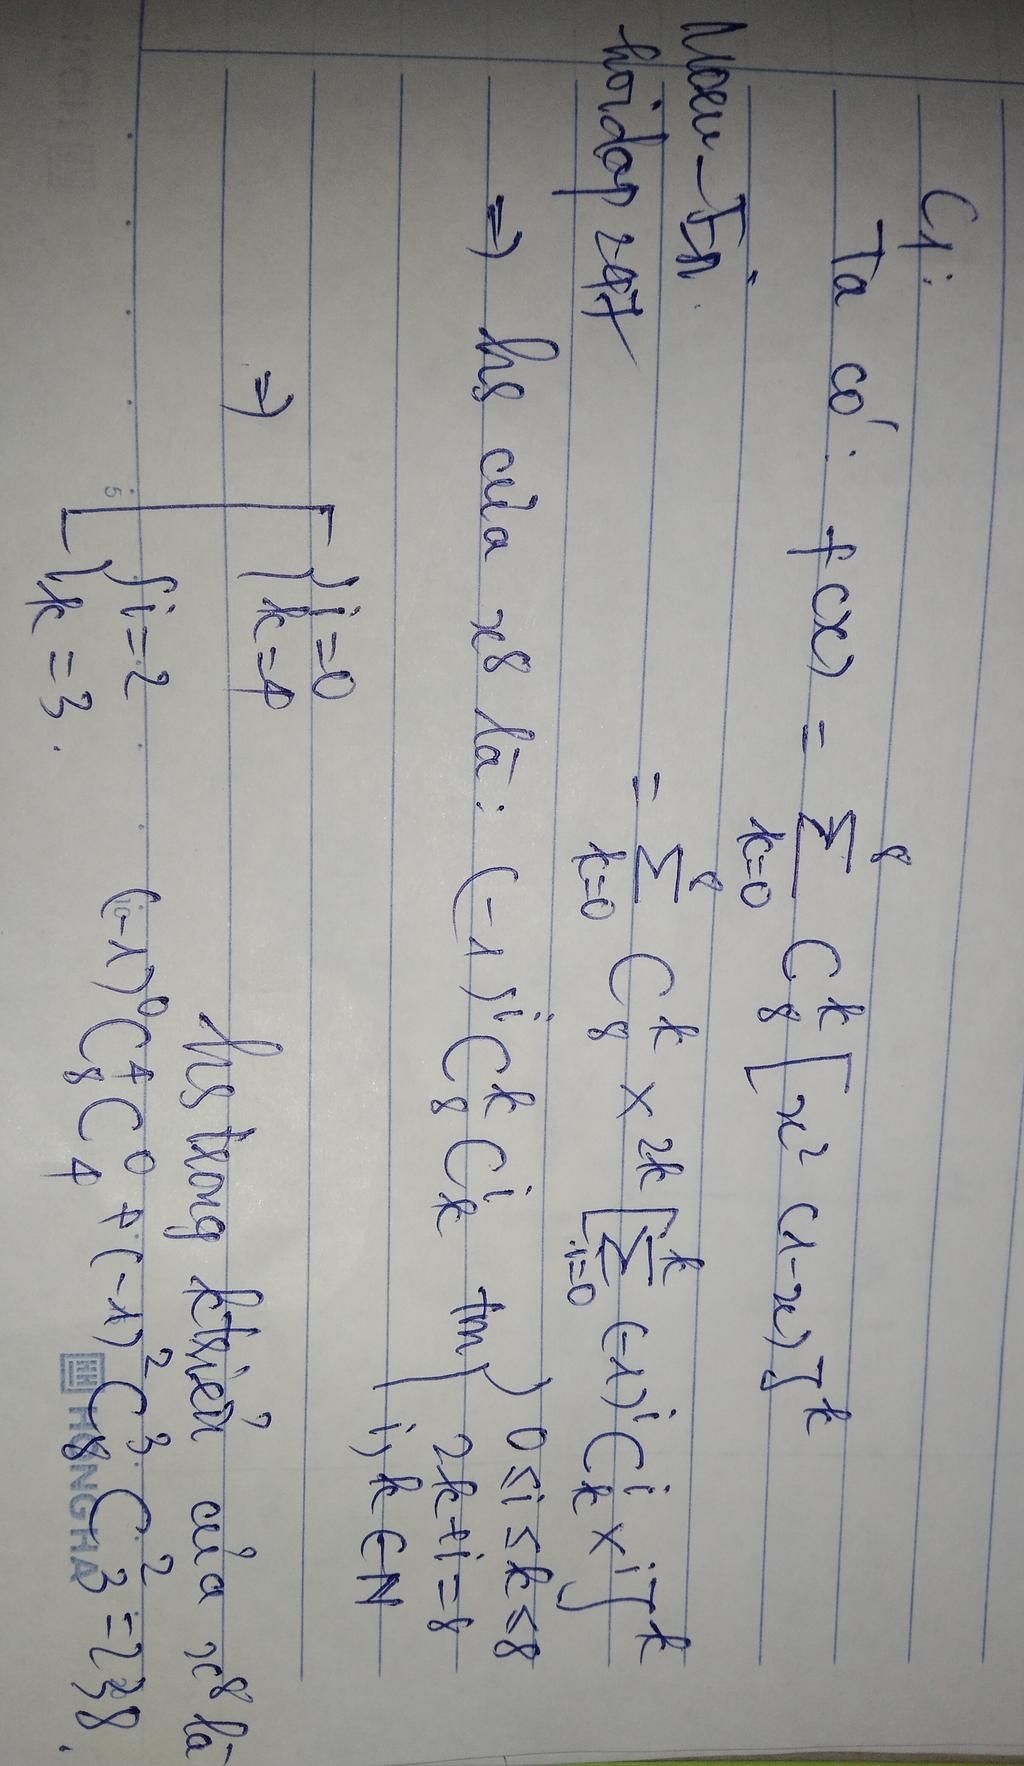 C1:
Ta có: f(x) = ∑_{k=0}^{8} C_8^k [x²(1-x)]^k
= ∑_{k=0}^{8} C_8^k x^{2k} [∑_{i=0}^{k} (-1)^i C_k^i x^i]^k
hoidap247
=> hs của x⁸ là: (-1)^i C_8^k C_k^i tm { 0≤i≤k≤8
2k+i=8
i, k ∈ N
=> [ { i=0
k=4
{ i=2
k=3.
hs trong ktriển của x⁸ là
(-1)⁰ C_8^4 C_4^0 + (-1)² C_8^3 C_3^2 = 238.
HONG HA
5